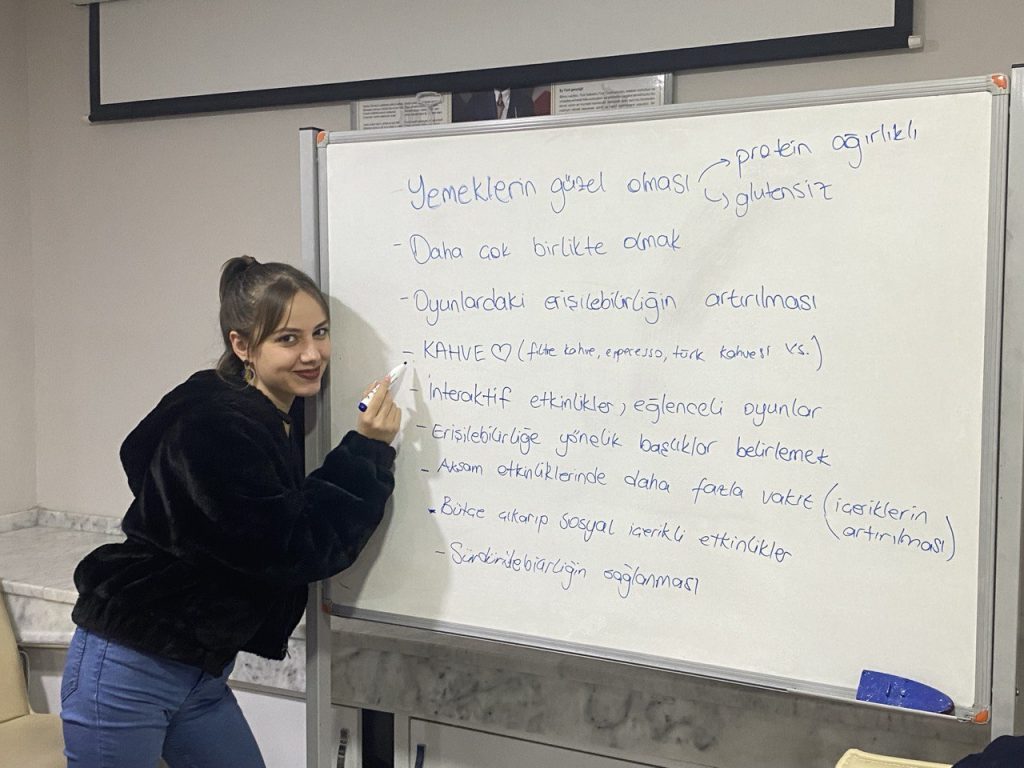 Yemeklerin güzel olması → protein ağırlıklı
↳ glutensiz
- Daha çok birlikte olmak
- Oyunlardaki erişilebilirliğin artırılması
- KAHVE ♡ (filtre kahve, esperesso, türk kahvesi vs.)
- İnteraktif etkinlikler, eğlenceli oyunlar
- Erişilebilirliğe yönelik başlıklar belirlemek
- Akşam etkinliklerinde daha fazla vakit (içeriklerin
artırılması)
- Bütçe çıkarıp sosyal içerikli etkinlikler
- Sürdürülebilirliğin sağlanması